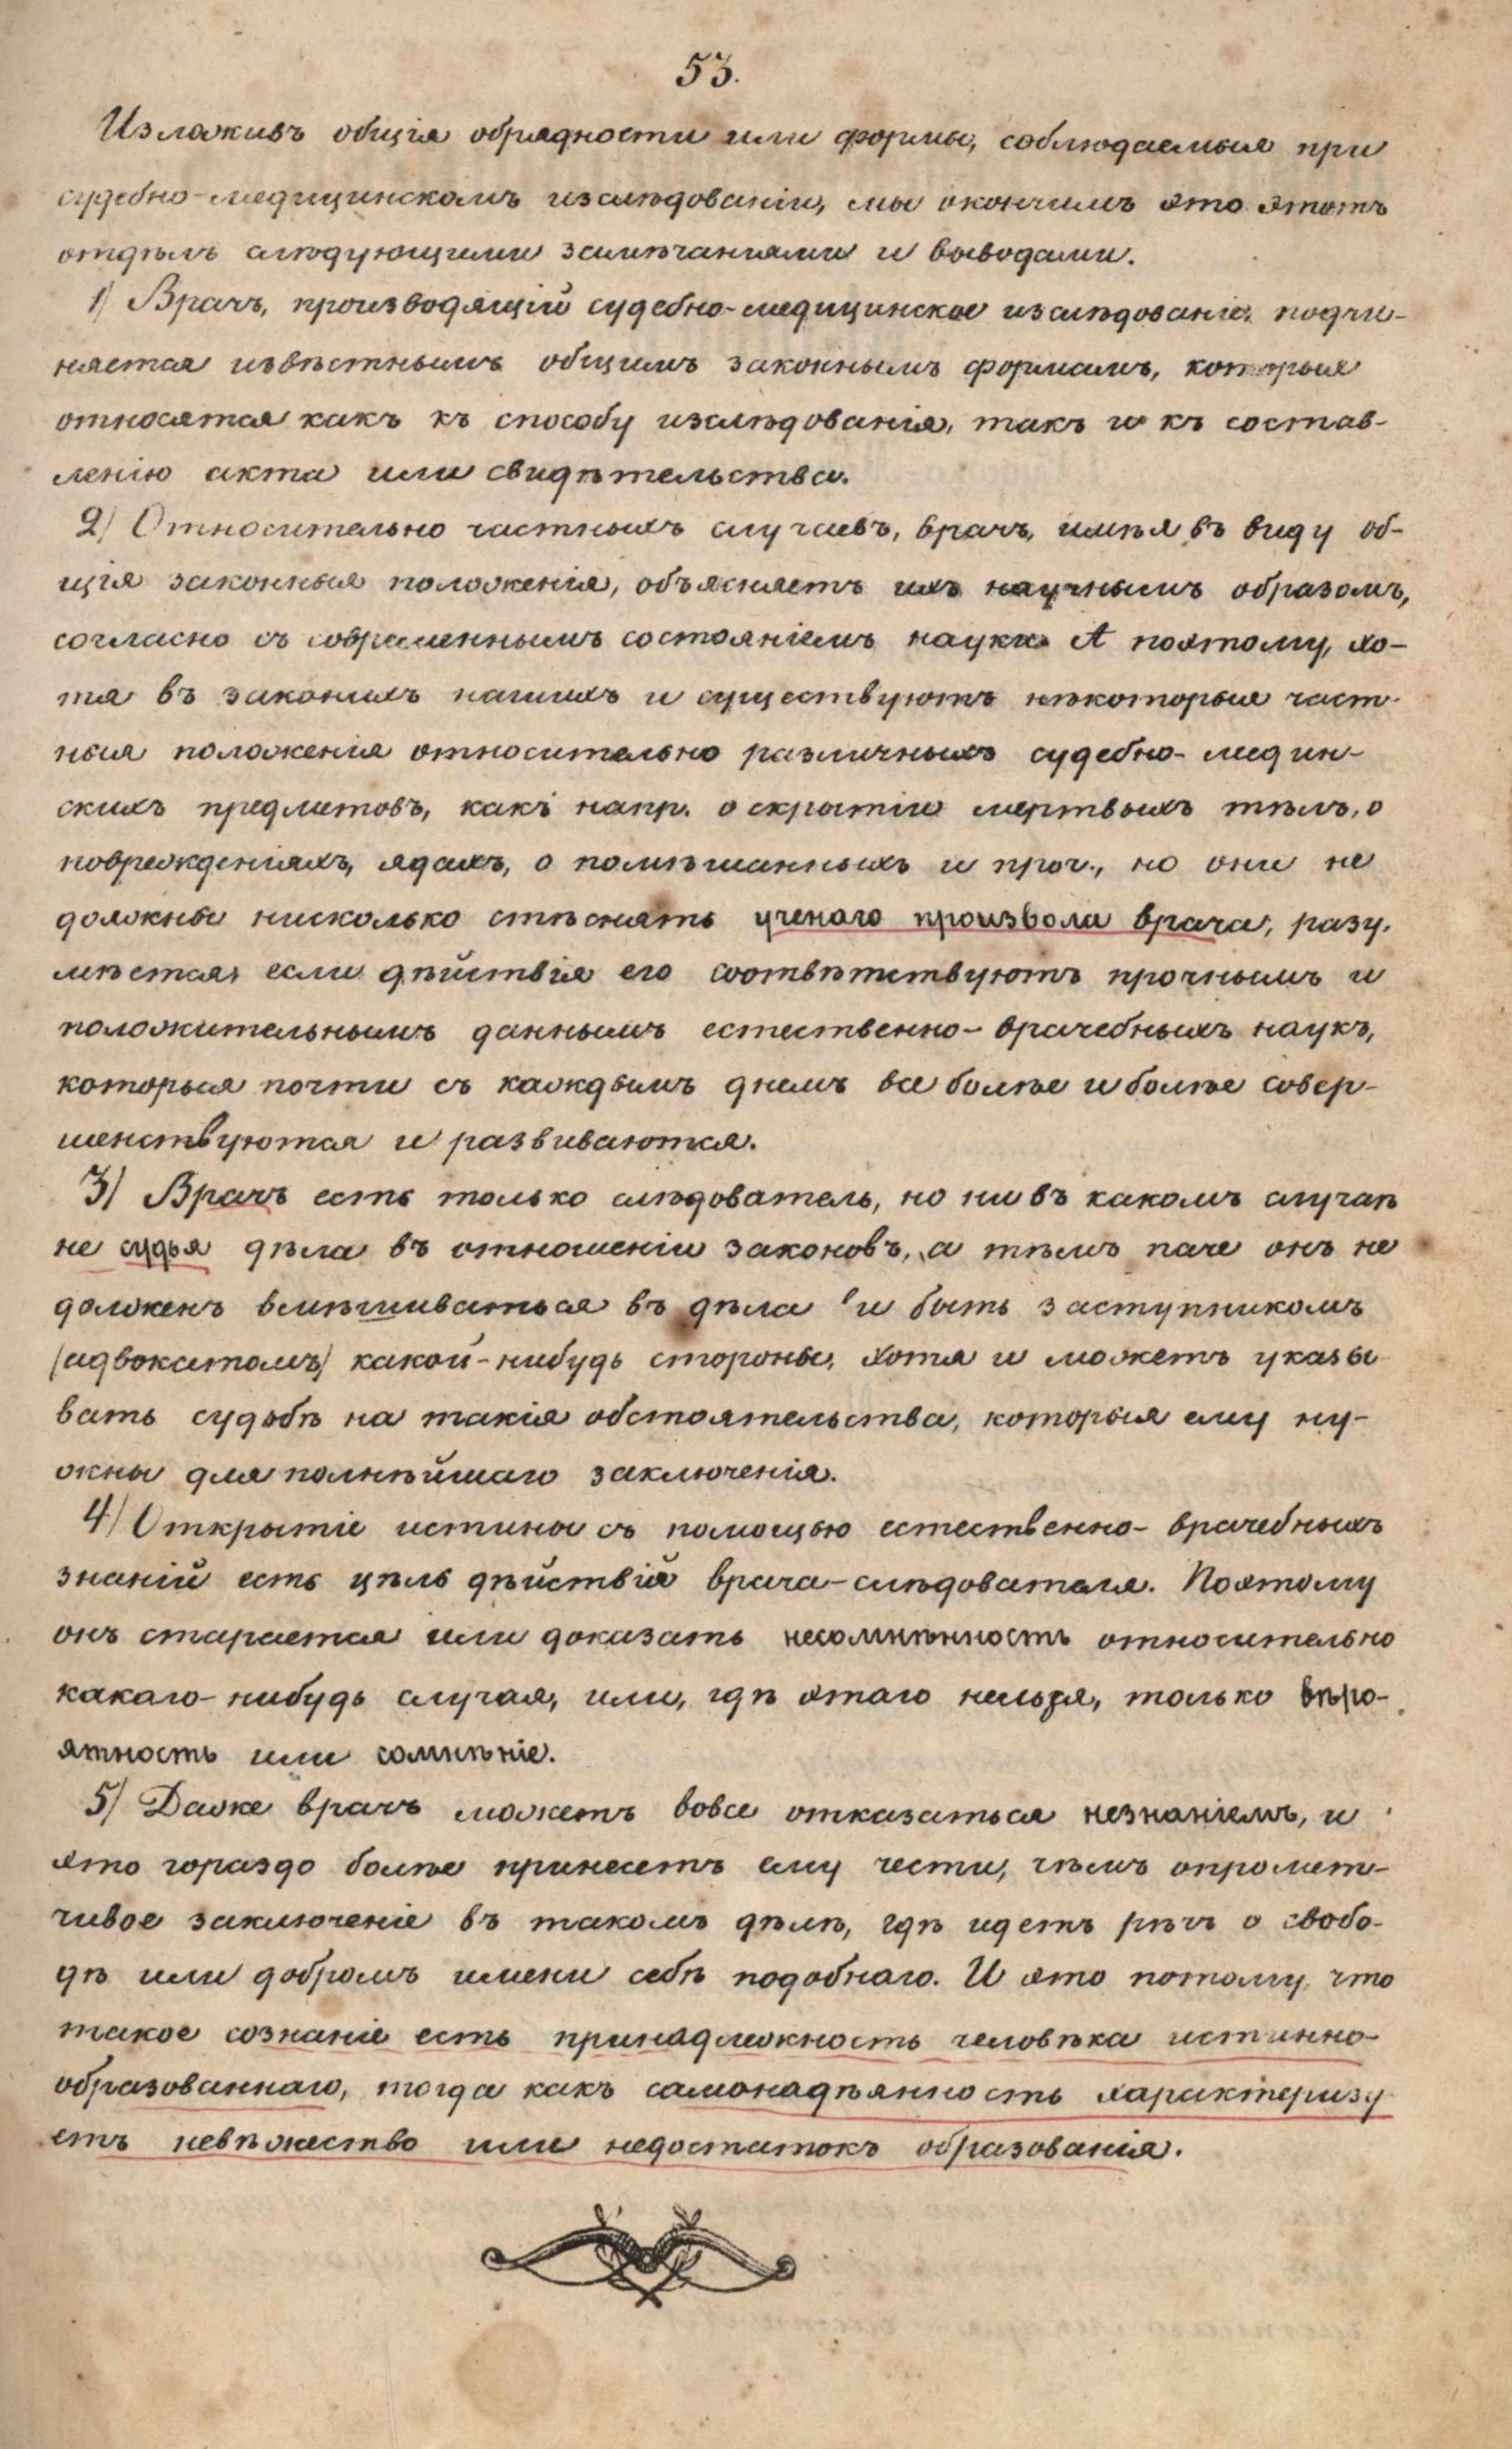 53.
Изложивъ общія обрядности или формы, соблюдаемыя при
судебно-медицинскомъ изслѣдованіи, мы окончимъ это этотъ
отдѣлъ слѣдующими замѣчаніями и выводами.
1) Врачъ, производящій судебно-медицинское изслѣдованіе, подчи-
няется извѣстнымъ общимъ законнымъ формамъ, которыя
относятся какъ къ способу изслѣдованія, такъ и къ состав-
ленію акта или свидѣтельства.
2) Относительно частныхъ случаевъ, врачъ, имѣя въ виду об-
щія законныя положенія, объясняетъ ихъ научнымъ образомъ,
согласно съ современнымъ состояніемъ науки. А поэтому, хо-
тя въ законахъ нашихъ и существуютъ нѣкоторыя част-
ныя положенія относительно различныхъ судебно-медин-
скихъ предметовъ, какъ напр. о скрытіи мертвыхъ тѣлъ, о
поврежденіяхъ, ядахъ, о помѣшанныхъ и проч., но они не
должны нисколько стѣснять ученаго произвола врача, разу-
мѣется, если дѣйствія его соотвѣтствуютъ прочнымъ и
положительнымъ даннымъ естественно-врачебныхъ наукъ,
которыя почти съ каждымъ днемъ все болѣе и болѣе совер-
шенствуются и развиваются.
3) Врачъ есть только слѣдователь, но ни въ какомъ случаѣ
не судья дѣла въ отношеніи законовъ, а тѣмъ паче онъ не
долженъ вмѣшиваться въ дѣла и быть заступникомъ
(адвокатомъ) какой-нибудь стороны, хотя и можетъ указы-
вать судьбѣ на такія обстоятельства, которыя ему ну-
жны для полнѣйшаго заключенія.
4) Открытіе истины съ помощью естественно-врачебныхъ
знаній есть цѣль дѣйствій врача-слѣдователя. Поэтому
онъ старается или доказать несомнѣнность относительно
какаго-нибудь случая, или, гдѣ этаго нельзя, только вѣро-
ятность или сомнѣніе.
5) Даже врачъ можетъ вовсе отказаться незнаніемъ, и
это гораздо болѣе принесетъ ему чести, чѣмъ опромет-
чивое заключеніе въ такомъ дѣлѣ, гдѣ идетъ рѣчь о свобо-
дѣ или добромъ имени себѣ подобнаго. И это потому, что
такое сознаніе есть принадлежность человѣка истинно-
образованнаго, тогда какъ самонадѣянность характеризу-
етъ невѣжество или недостатокъ образованія.